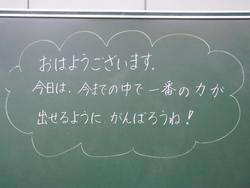 おはようございます.
今日は.今までの中で一番の力が
出せるように.がんばろうね!